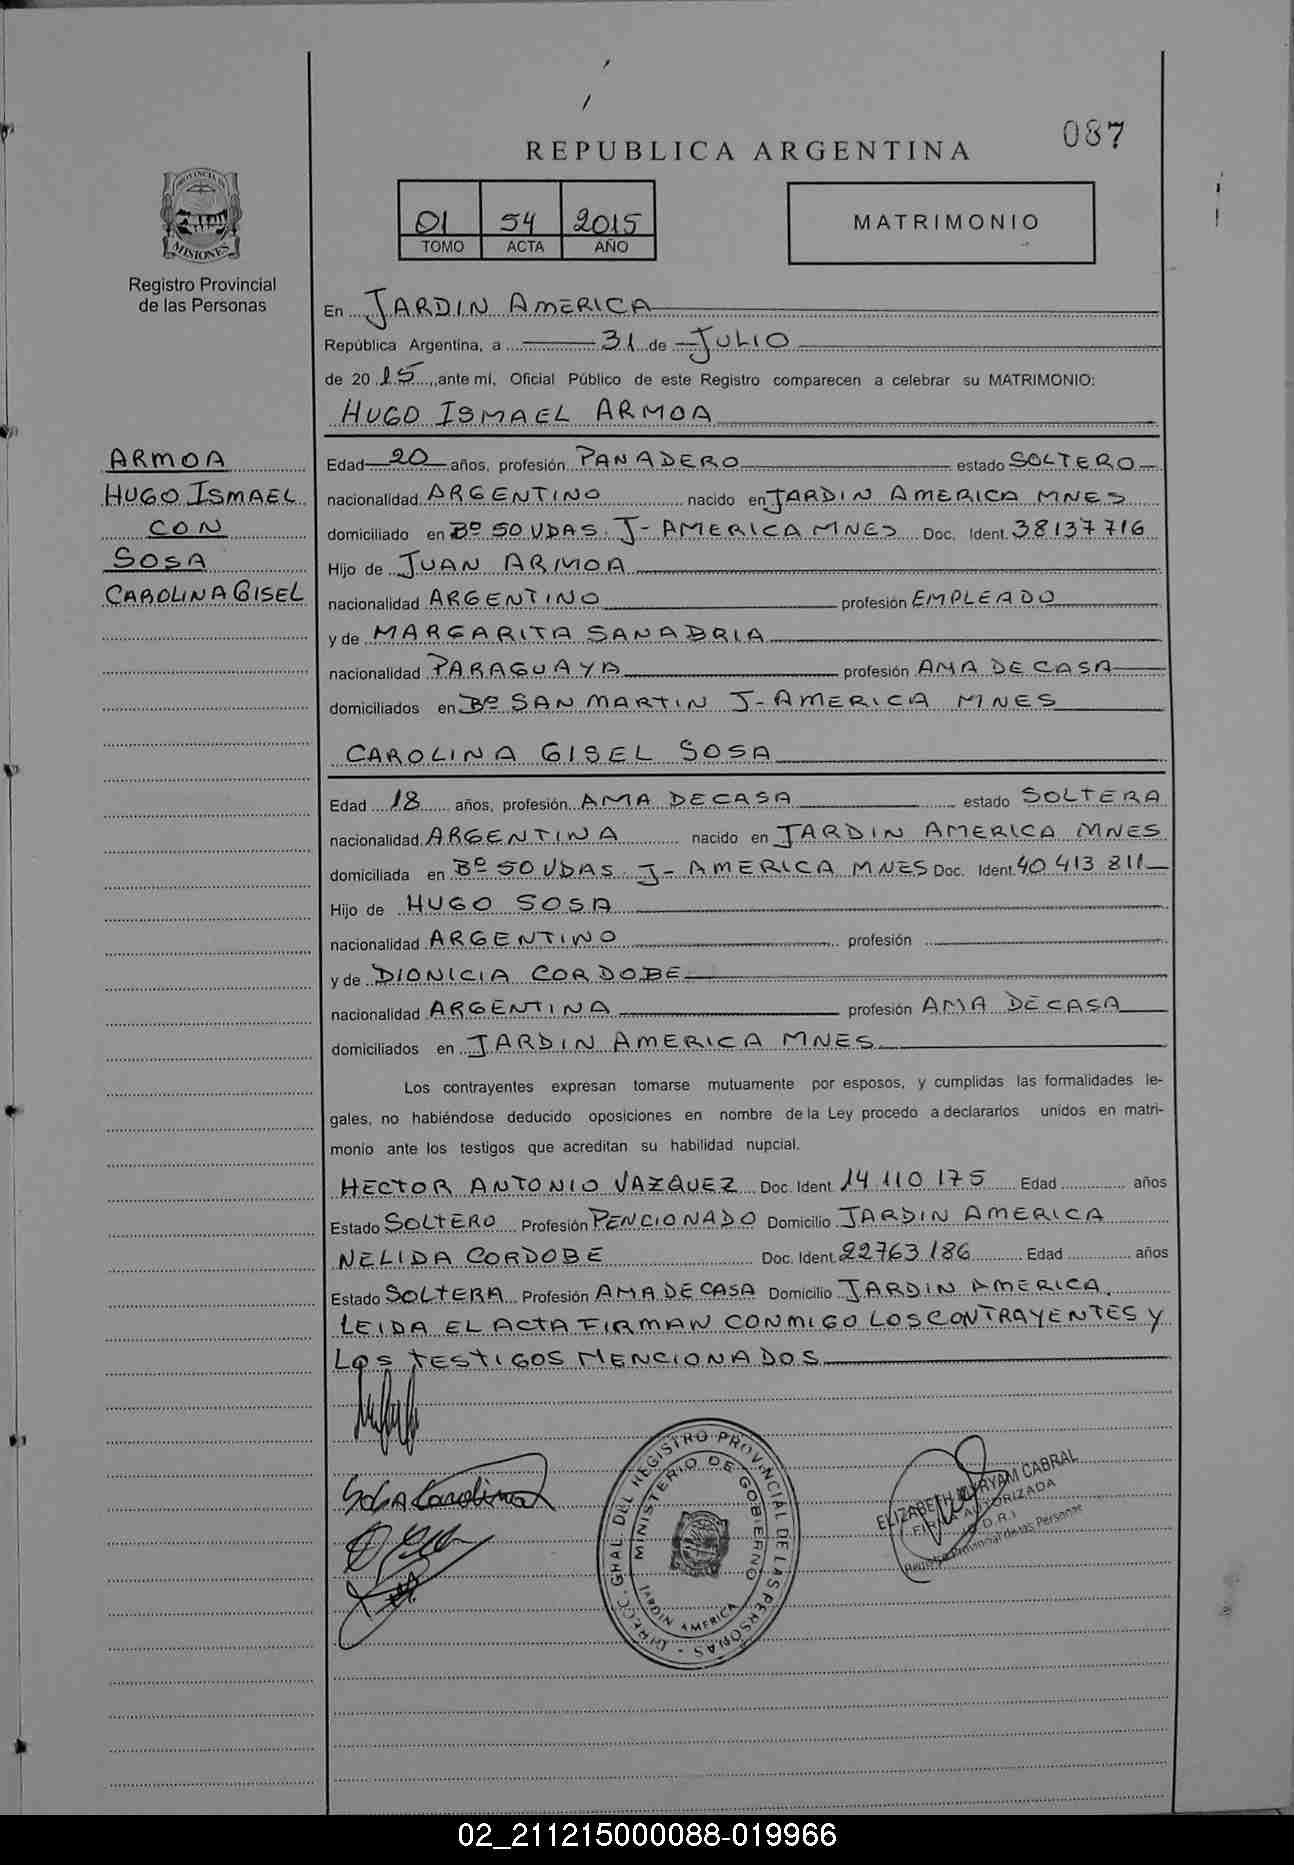 087
REPUBLICA ARGENTINA
01 54 2015
TOMO ACTA AÑO
MATRIMONIO
PROVINCIA DE
MISIONES
Registro Provincial
de las Personas
En JARDIN AMERICA
República Argentina, a 31 de JULIO
de 2015, ante mí, Oficial Público de este Registro comparecen a celebrar su MATRIMONIO:
HUGO ISMAEL ARMOA
ARMOA
HUGO ISMAEL
CON
SOSA
CAROLINA GISEL
Edad 20 años, profesión PANADERO estado SOLTERO
nacionalidad ARGENTINO nacido en JARDIN AMERICA MNES
domiciliado en Bº 50 VDAS. J- AMERICA MNES Doc. Ident. 38137716
Hijo de JUAN ARMOA
nacionalidad ARGENTINO profesión EMPLEADO
y de MARGARITA SANABRIA
nacionalidad PARAGUAYA profesión AMA DE CASA
domiciliados en Bº SAN MARTIN J- AMERICA MNES
CAROLINA GISEL SOSA
Edad 18 años, profesión AMA DE CASA estado SOLTERA
nacionalidad ARGENTINA nacido en JARDIN AMERICA MNES
domiciliada en Bº 50 VDAS. J- AMERICA MNES Doc. Ident. 40 413 811
Hijo de HUGO SOSA
nacionalidad ARGENTINO profesión
y de DIONICIA CORDOBE
nacionalidad ARGENTINA profesión AMA DE CASA
domiciliados en JARDIN AMERICA MNES
Los contrayentes expresan tomarse mutuamente por esposos, y cumplidas las formalidades le-
gales, no habiéndose deducido oposiciones en nombre de la Ley procedo a declararlos unidos en matri-
monio ante los testigos que acreditan su habilidad nupcial.
HECTOR ANTONIO VAZQUEZ Doc. Ident. 14 110 175 Edad años
Estado SOLTERO Profesión PENCIONADO Domicilio JARDIN AMERICA
NELIDA CORDOBE Doc. Ident. 22763186 Edad años
Estado SOLTERA Profesión AMA DE CASA Domicilio JARDIN AMERICA.
LEIDA EL ACTA FIRMAN CONMIGO LOS CONTRAYENTES Y
LOS TESTIGOS MENCIONADOS
Sosa Carolina
DIRECC. GRAL. DEL REGISTRO PROVINCIAL DE LAS PERSONAS
MINISTERIO DE GOBIERNO
JARDIN AMERICA
ELIZABETH MYRYAM CABRAL
FIRMA AUTORIZADA
D.R.I
Registro Provincial de las Personas
02_211215000088-019966